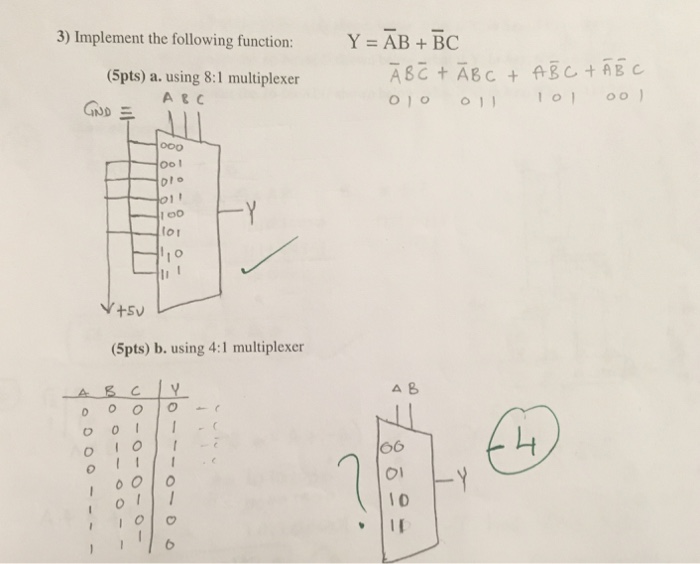 3) Implement the following function: Y = A̅B + B̅C
(5pts) a. using 8:1 multiplexer
A̅BC̅ + A̅BC + AB̅C + A̅B̅C
010 011 101 001
A B C
GND
000
001
010
011
100
101
110
111
Y
+5V
(5pts) b. using 4:1 multiplexer
A B C Y
0 0 0 0
0 0 1 1
0 1 0 1
0 1 1 1
1 0 0 0
1 0 1 1
1 1 0 0
1 1 1 0
A B
00
01
10
11
Y
?
-4